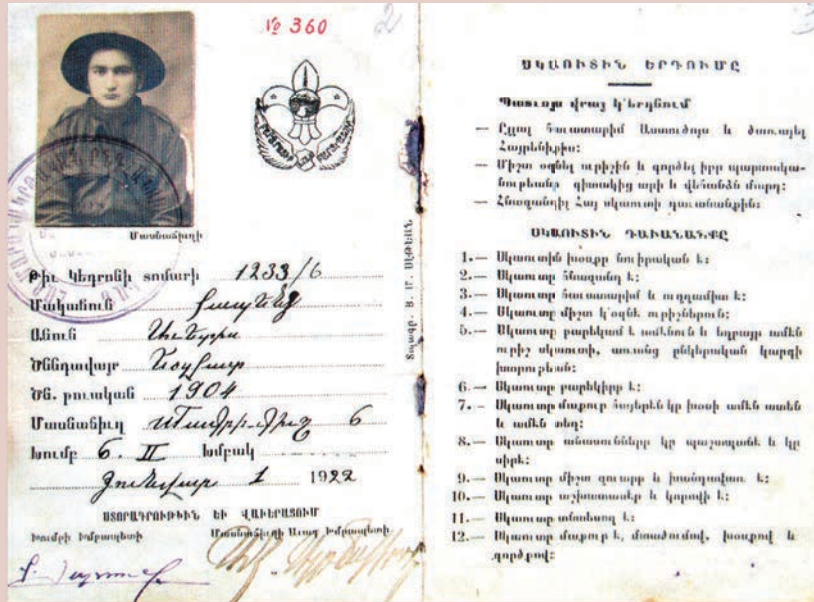 № 360
2
Մասնաճիւղի
Թիւ Կեդրոնի տոմարի 1233/6
Մականուն
Անուն Աւետիս
Ծննդավայր
Ծն. թուական 1904
Մասնաճիւղ 6
Խումբ 6. II Խմբակ
Յունուար 1 1922
ՍՏՈՐԱԳՐՈՒԹԻՒՆ ԵՒ ՎԱՒԵՐԱՑՈՒՄ
Խումբի Խմբապետի Մասնաճիւղի Աւագ Խմբապետի
ՍԿԱՈՒՏԻՆ ԵՐԴՈՒՄԸ
Պատւոյս վրայ կ'երդնում
— Ըլլալ հաւատարիմ Աստուծոյս և ծառայել
Հայրենիքիս:
— Միշտ օգնել ուրիշին և գործել իբր պարտակա-
նութեանը գիտակից արի և վեհանձն մարդ:
— Հնազանդիլ Հայ սկաուտի դաւանանքին:
ՍԿԱՈՒՏԻՆ ԴԱՒԱՆԱՆՔԸ
1.— Սկաուտին խօսքը նուիրական է:
2.— Սկաուտը հնազանդ է:
3.— Սկաուտը հաւատարիմ և ուղղամիտ է:
4.— Սկաուտը միշտ կ'օգնէ ուրիշներուն:
5.— Սկաուտը բարեկամ է ամենուն և եղբայր ամեն
ուրիշ սկաուտի, առանց ընկերական կարգի
խտրութեան:
6.— Սկաուտը բարեկիրթ է:
7.— Սկաուտը մաքուր հայերէն կը խօսի ամէն ատեն
և ամէն տեղ:
8.— Սկաուտը անասունները կը պաշտպանէ և կը
սիրէ:
9.— Սկաուտը միշտ զուարթ և խանդավառ է:
10.— Սկաուտը աշխատասէր և կորովի է:
11.— Սկաուտը տնտեսող է:
12.— Սկաուտը մաքուր է, մտածումով, խօսքով և
գործքով: